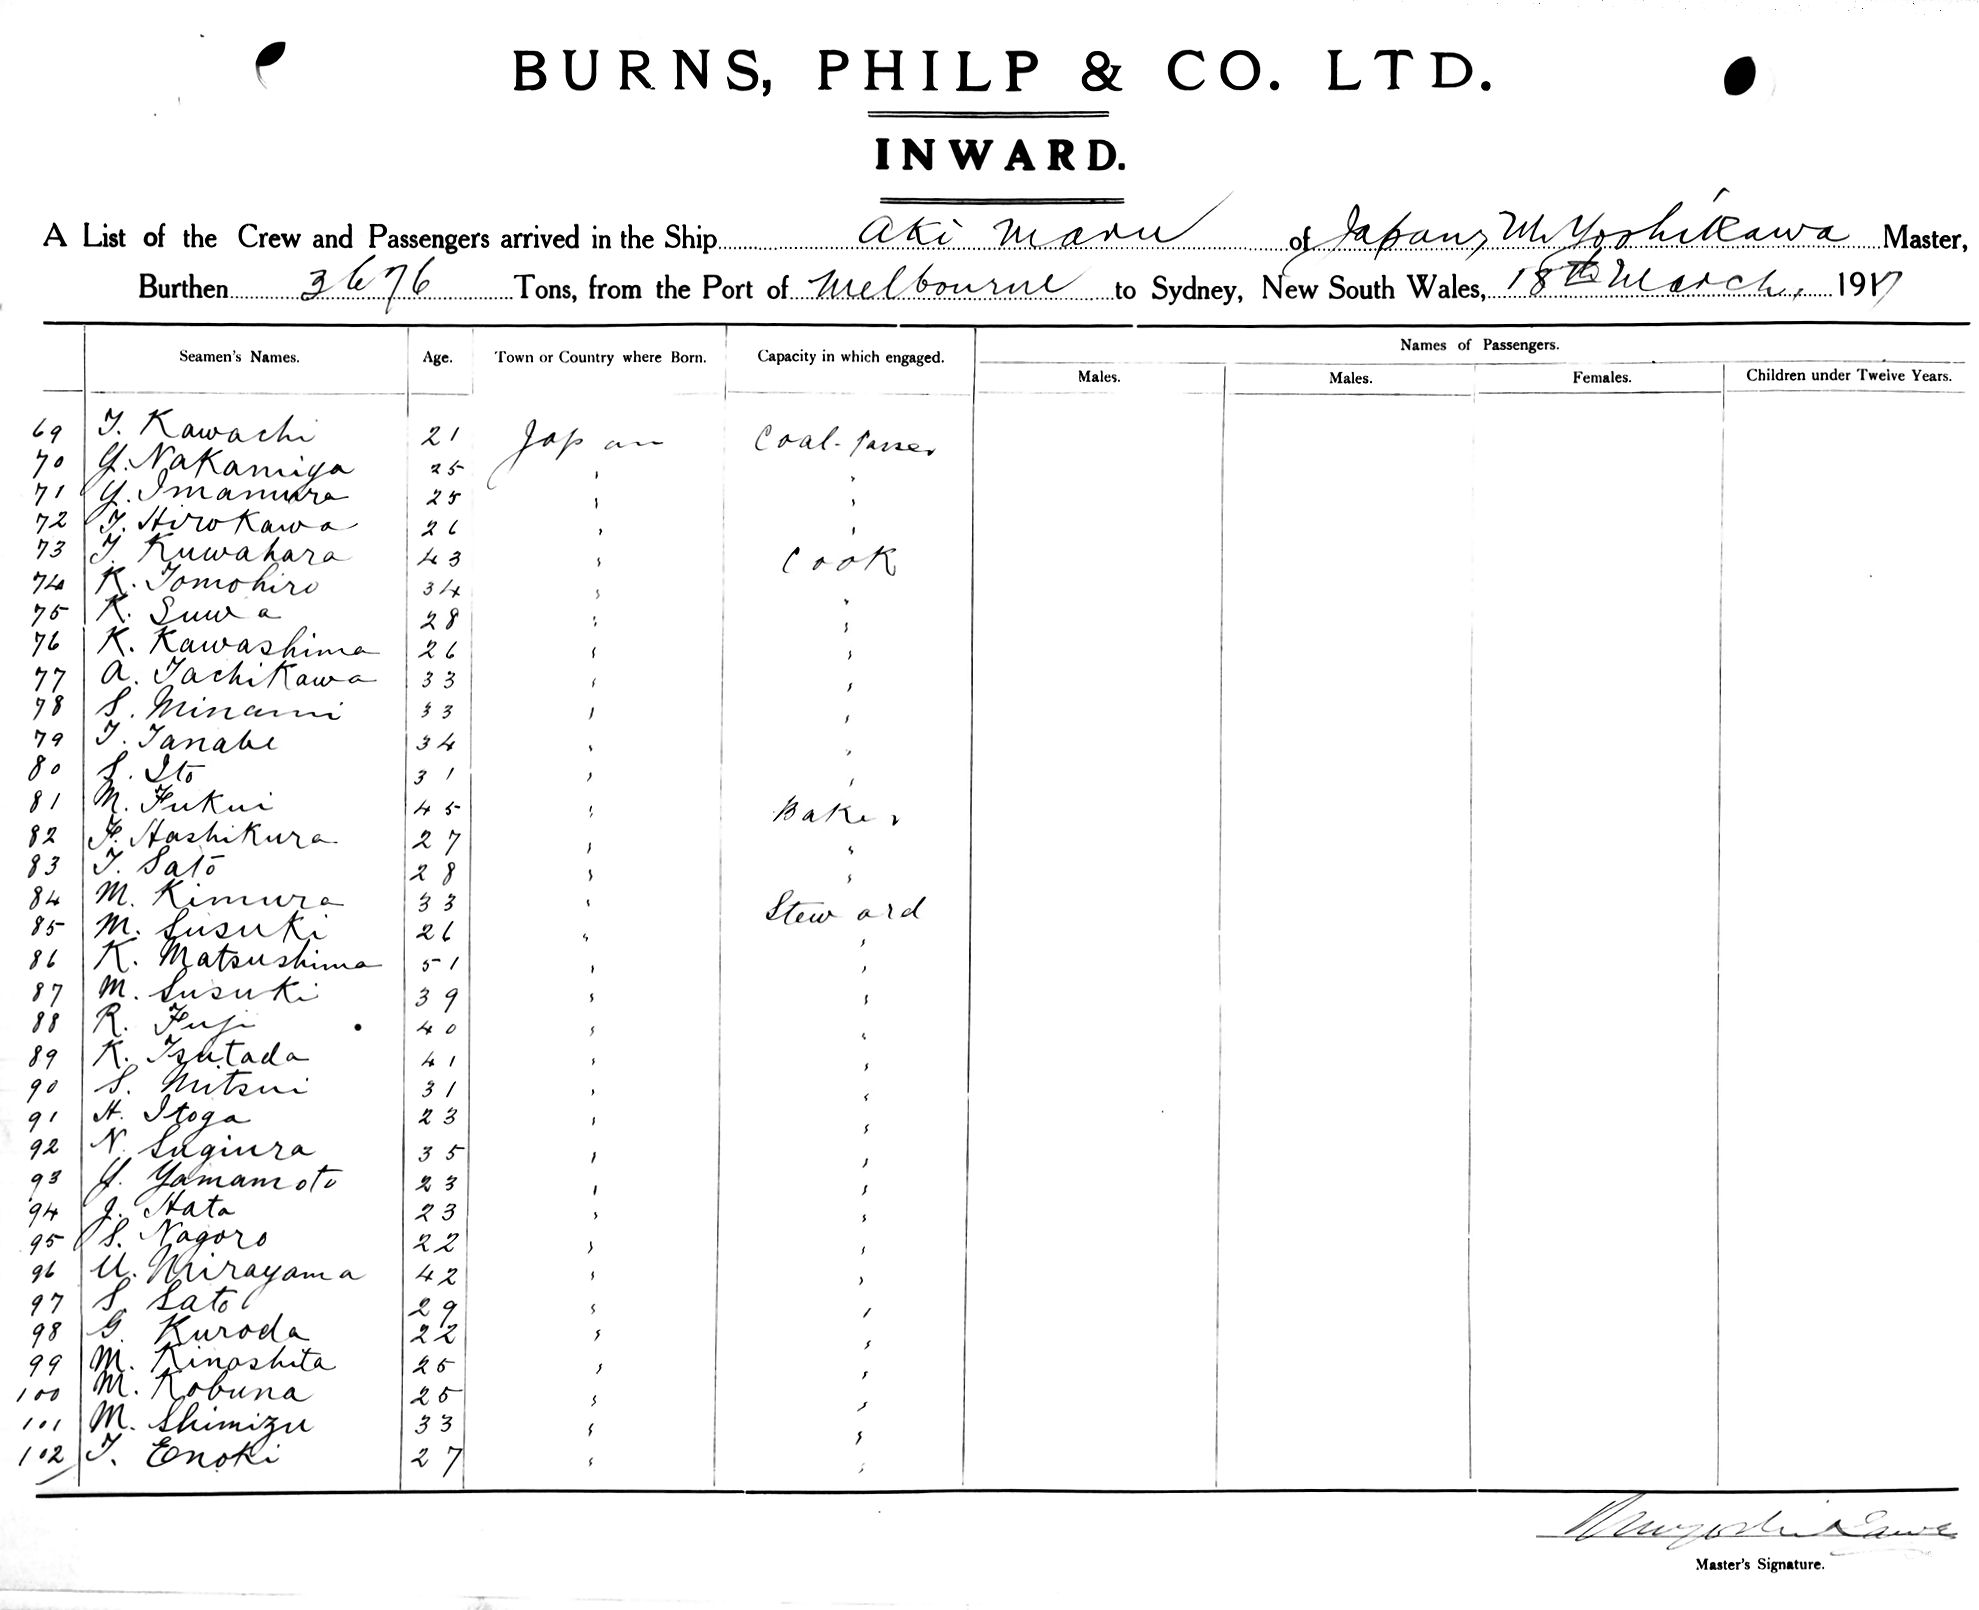 BURNS, PHILP & CO. LTD.
INWARD.
A List of the Crew and Passengers arrived in the Ship Aki Maru of Japan, M. Yoshikawa Master,
Burthen 3676 Tons, from the Port of Melbourne to Sydney, New South Wales, 18th March, 1917
Seamen's Names. Age. Town or Country where Born. Capacity in which engaged. Names of Passengers.
Males. Males. Females. Children under Twelve Years.
69 T. Kawachi 21 Japan Coal-Passer
70 Y. Nakamiya 25 " "
71 Y. Imamura 25 " "
72 T. Hirokawa 26 " "
73 T. Kuwahara 43 " Cook
74 K. Tomohiro 34 " "
75 K. Suwa 28 " "
76 K. Kawashima 26 " "
77 A. Tachikawa 33 " "
78 S. Minami 33 " "
79 T. Tanabe 34 " "
80 S. Ito 31 " "
81 M. Fukui 45 " Baker
82 F. Hashikura 27 " "
83 T. Sato 28 " "
84 M. Kimura 33 " Steward
85 M. Susuki 26 " "
86 K. Matsushima 51 " "
87 M. Susuki 39 " "
88 R. Fuji 40 " "
89 K. Tsutada 41 " "
90 S. Mitsui 31 " "
91 H. Itoga 23 " "
92 N. Sugiura 35 " "
93 Y. Yamamoto 23 " "
94 J. Hata 23 " "
95 S. Nagoro 22 " "
96 U. Mirayama 42 " "
97 S. Sato 29 " "
98 G. Kuroda 22 " "
99 M. Kinoshita 25 " "
100 M. Kobuna 25 " "
101 M. Shimizu 33 " "
102 T. Enoki 27 " "
M. Yoshikawa
Master's Signature.